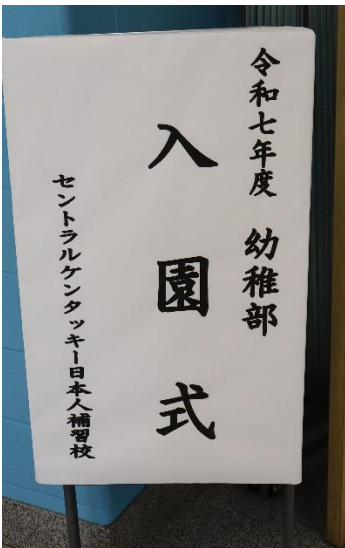 令和七年度 幼稚部
入園式
セントラルケンタッキー日本人補習校